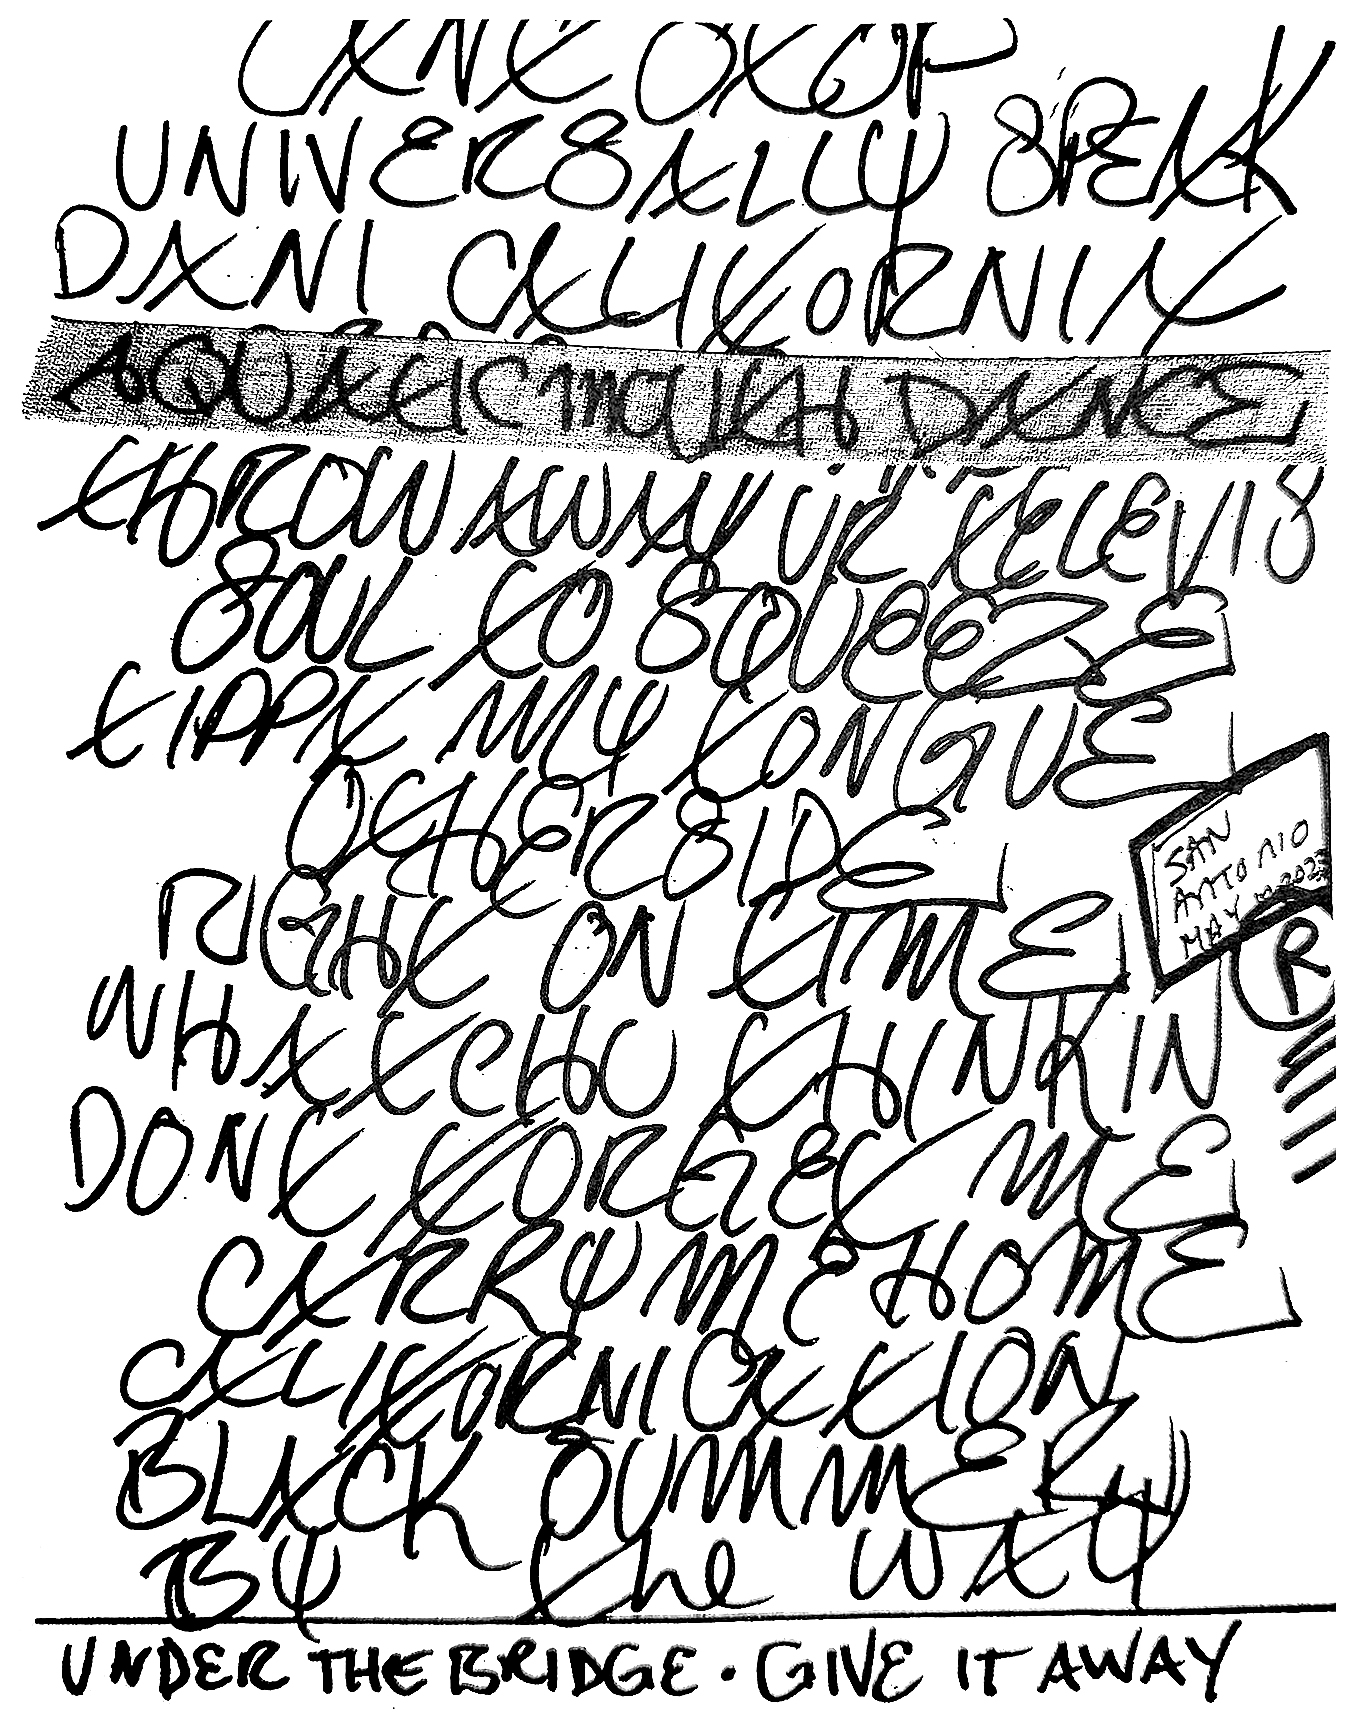 CANT STOP
UNIVERSALLY SPEAK
DANI CALIFORNIA
AQUATIC MOUTH DANCE
THROW AWAY UR TELEVIS
SOUL TO SQUEEZE
TIPPA MY TONGUE
OTHERSIDE
SAN
ANTONIO
MAY 2023
R
RIGHT ON TIME
WHATCHU THINKIN
DONT FORGET ME
CARRY ME HOME
CALIFORNICATION
BLACK SUMMER
BY the WAY
UNDER THE BRIDGE · GIVE IT AWAY